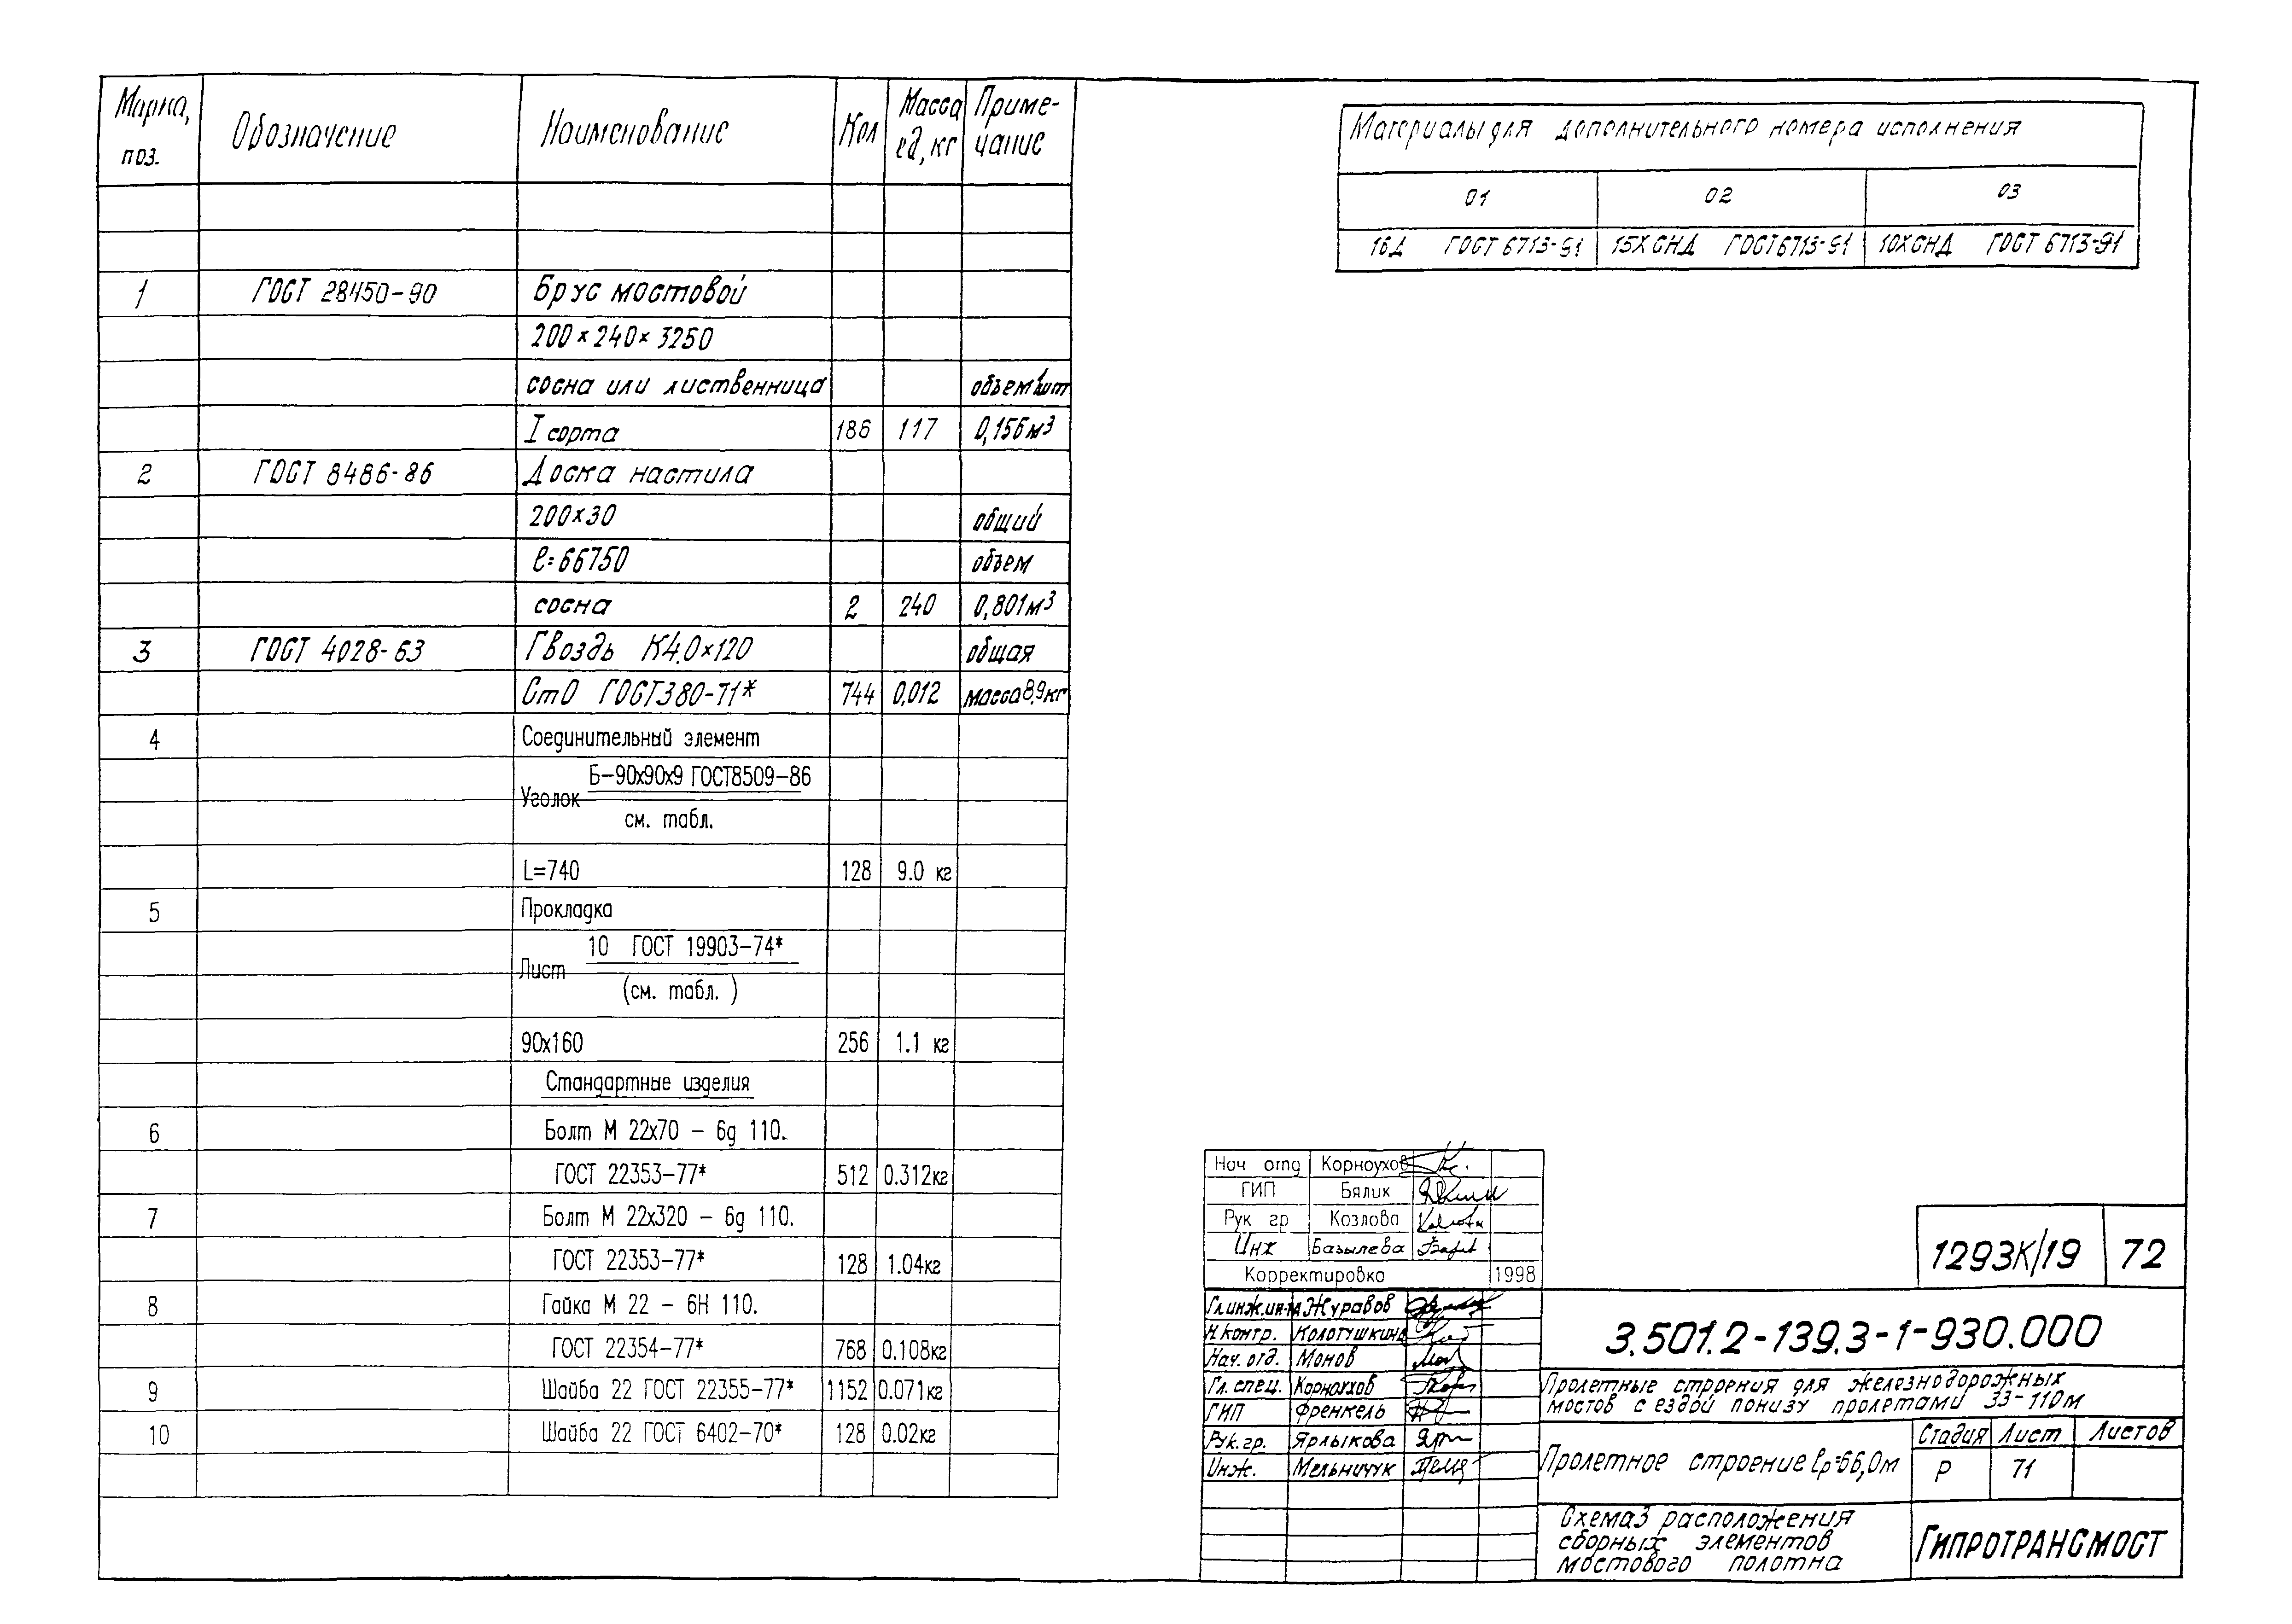 Марка, поз. Обозначение Наименование Кол Масса ед, кг Приме-чание
1 ГОСТ 28450-90 Брус мостовой
200×240×3250
сосна или лиственница объем 1шт
I сорта 186 117 0,156м³
2 ГОСТ 8486-86 Доска настила
200×30 общий
ℓ=66750 объем
сосна 2 240 0,801м³
3 ГОСТ 4028-63 Гвоздь К4.0×120 общая
Ст0 ГОСТ380-71* 744 0,012 масса 8,9кг
4 Соединительный элемент
Уголок Б-90х90х9 ГОСТ8509-86
см. табл.
L=740 128 9.0 кг
5 Прокладка
Лист 10 ГОСТ 19903-74*
(см. табл. )
90х160 256 1.1 кг
Стандартные изделия
6 Болт М 22х70 - 6g 110.
ГОСТ 22353-77* 512 0.312кг
7 Болт М 22х320 - 6g 110.
ГОСТ 22353-77* 128 1.04кг
8 Гайка М 22 - 6Н 110.
ГОСТ 22354-77* 768 0.108кг
9 Шайба 22 ГОСТ 22355-77* 1152 0.071кг
10 Шайба 22 ГОСТ 6402-70* 128 0.02кг
Материалы для дополнительного номера исполнения
01 02 03
16Д ГОСТ 6713-91 15ХСНД ГОСТ6713-91 10ХСНД ГОСТ 6713-91
Нач отд Корноухов
ГИП Бялик
Рук гр Козлова
Инж Базылева
Корректировка 1998
Гл.инж.ин-та Журавов
Н.контр. Колотушкина
Нач. отд. Монов
Гл. спец. Корноухов
ГИП Френкель
Рук. гр. Ярлыкова
Инж. Мельничук
1293К/19 72
3.501.2-139.3-1-930.000
Пролетные строения для железнодорожных
мостов с ездой понизу пролетами 33-110м
Пролетное строение ℓр=66,0м
Стадия Лист Листов
Р 71
Схема3 расположения
сборных элементов
мостового полотна
ГИПРОТРАНСМОСТ